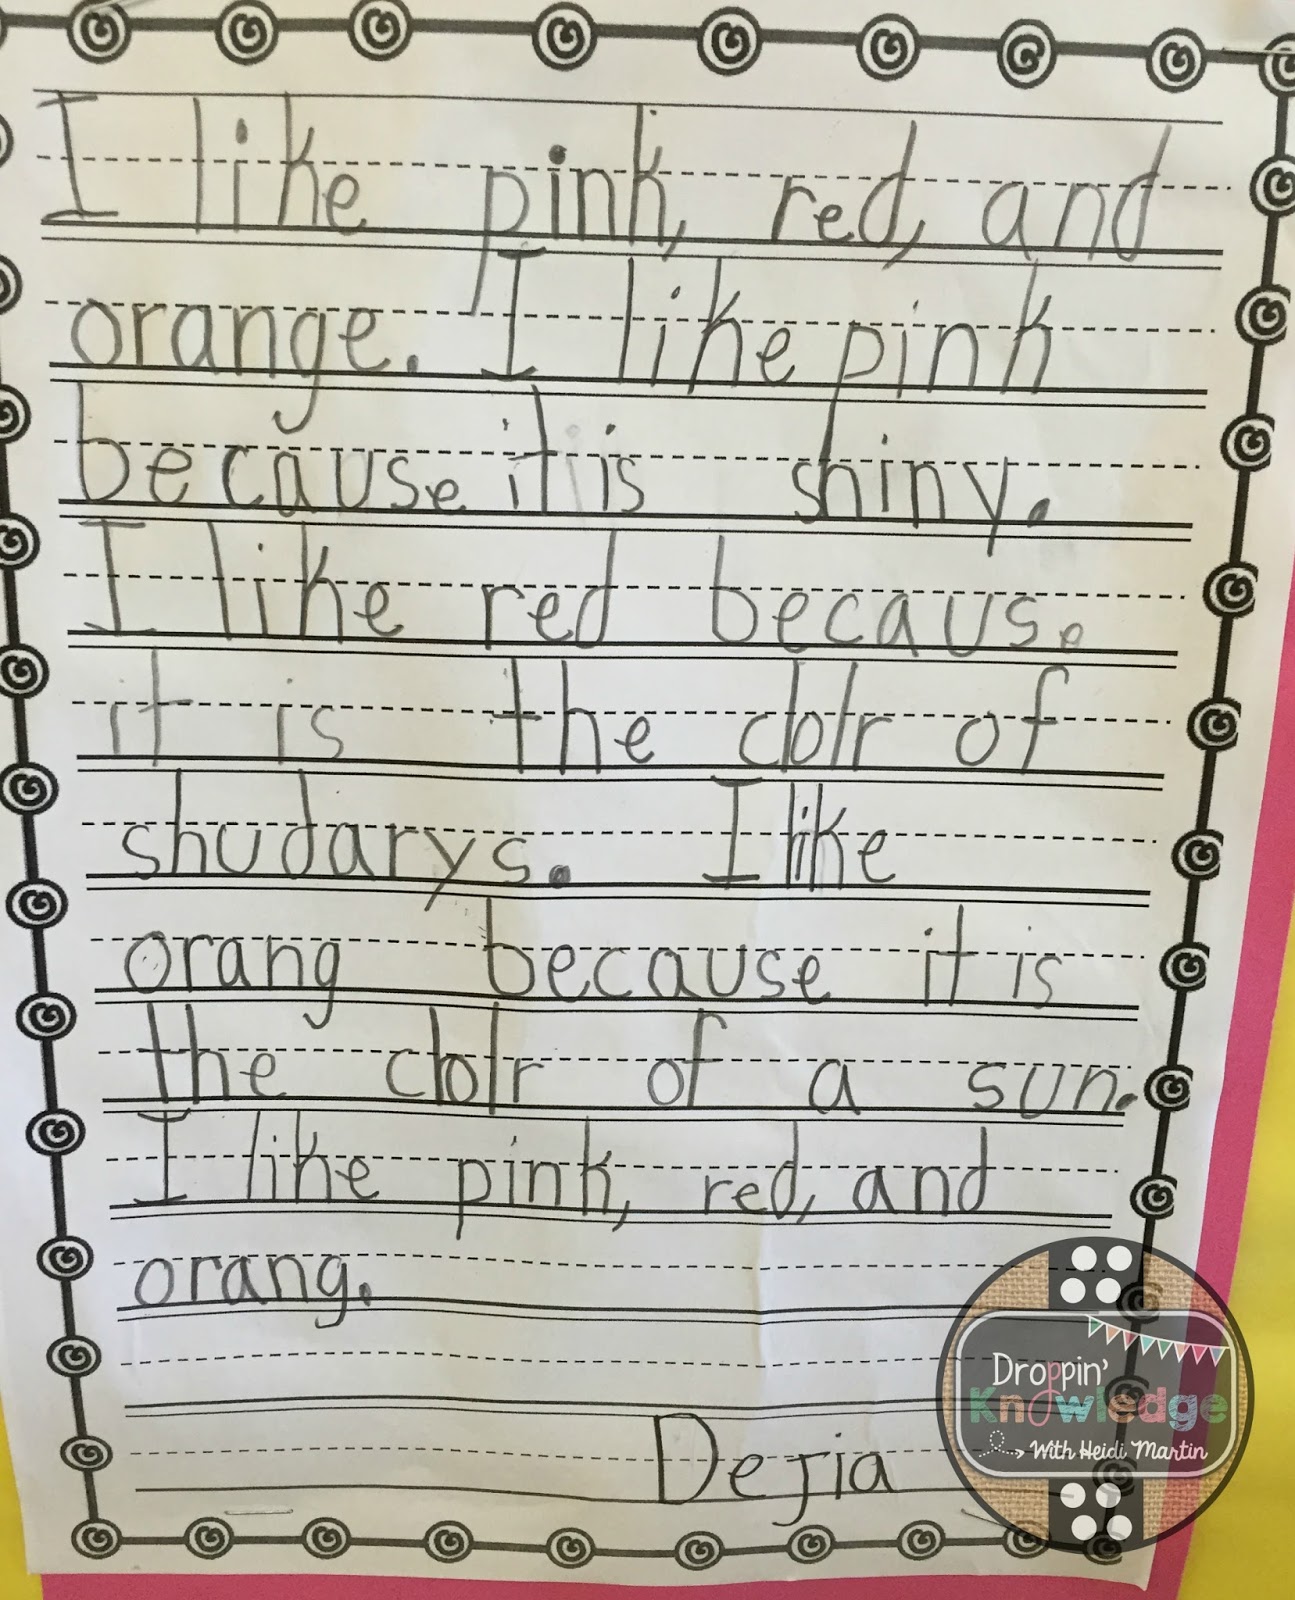 I like pink, red, and
orange. I like pink
because it is shiny.
I like red becaus.e
it is the clolr of
shudarys. I like
orang because it is
the clolr of a sun.
I like pink, red, and
orang.
Dejia
Droppin'
Knowledge
With Heidi Martin